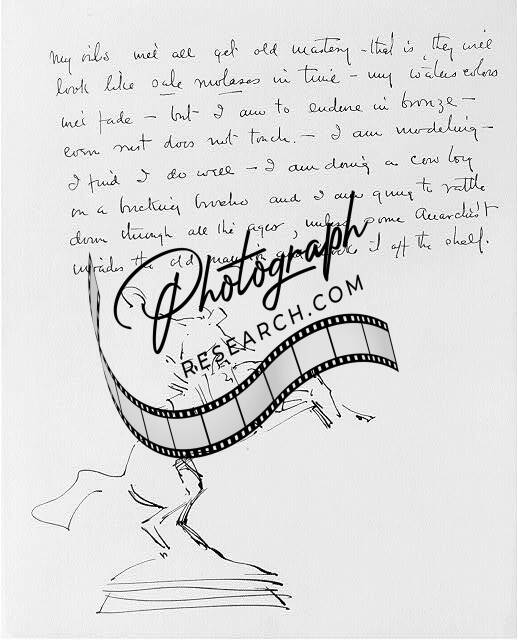 My oils will all get old mastery - that is, they will
look like pale molases in time - my water colors
will fade - but I am to endure in bronze -
even rust does not touch. - I am modeling -
I find I do well - I am doing a cow boy
on a bucking broncho and I am going to rattle
down through all the ages, unless some Anarchist
invades the old it off the shelf.
Photograph
RESEARCH.COM